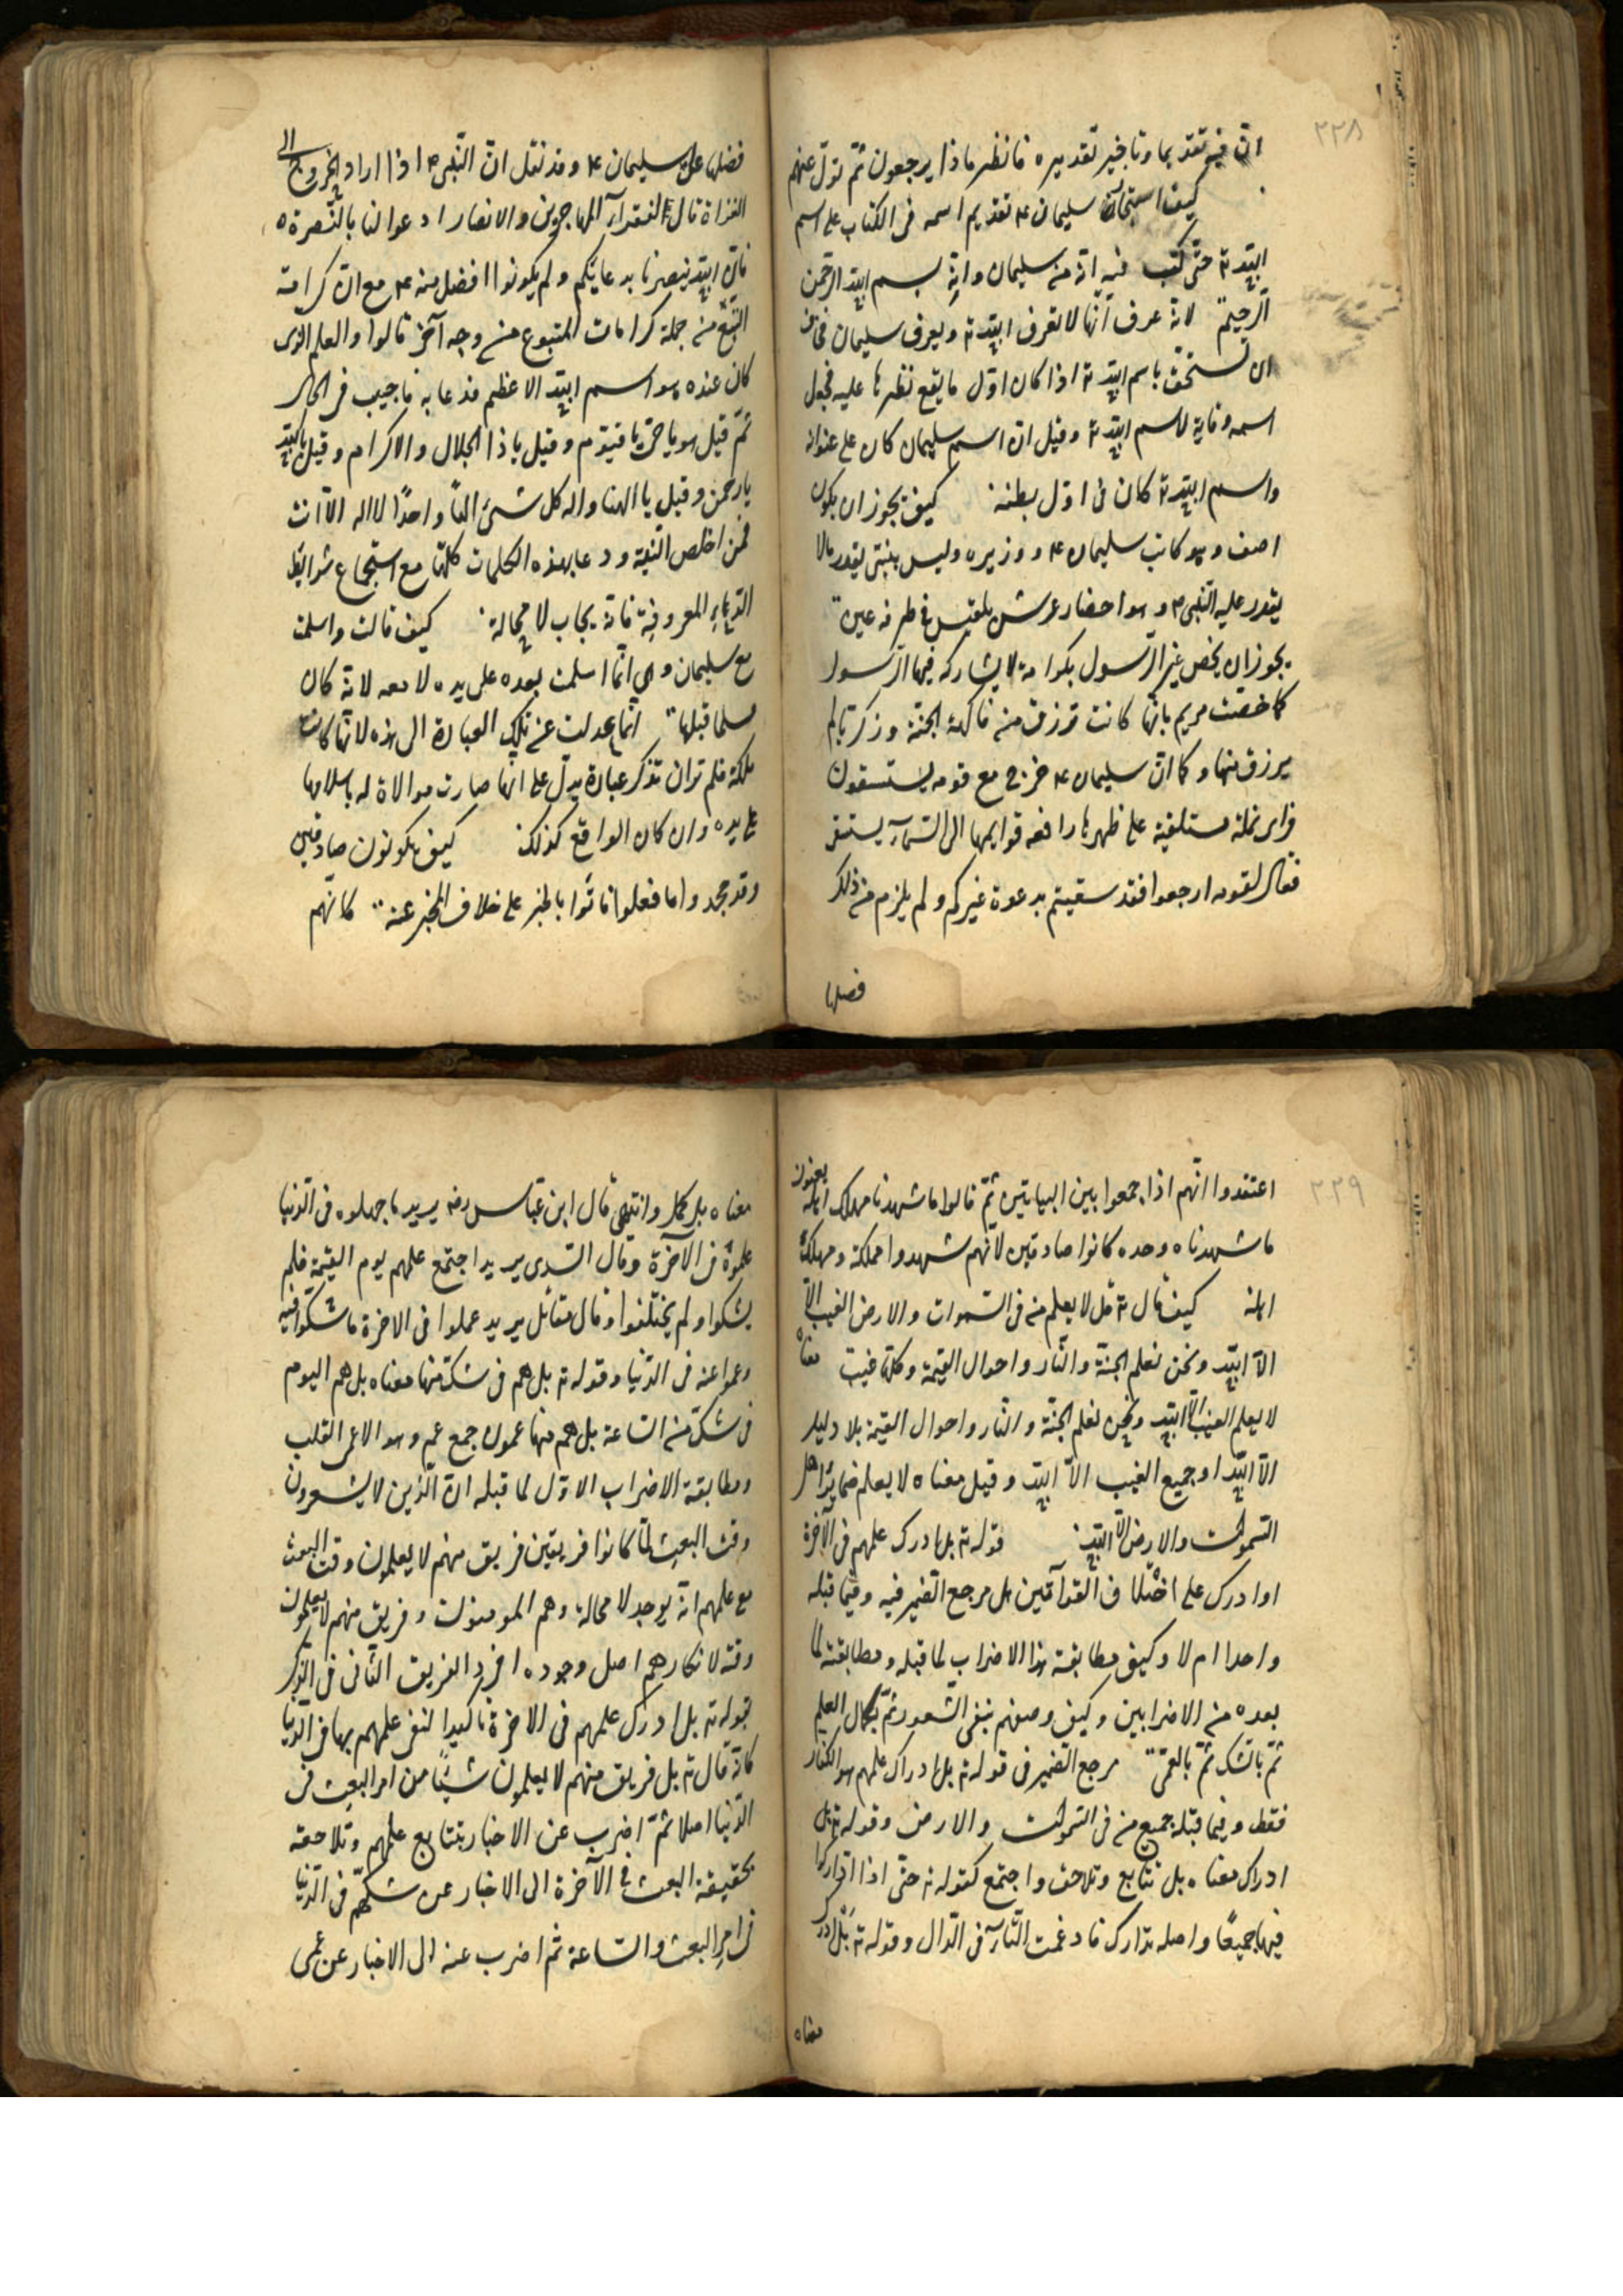 ٢٢٨
انّ فيه تقديما وتاخير تقديره فانظر ماذا يرجعون ثمّ تولّ عنهم
كيف استجاز سليمان ع تقديم اسمه فى الكتاب على اسم
الله ته حتى كتب فيه انه من سليمان وانه بسم الله الرحمن
الرحيم لانه عرف انّها لا تعرف الله ته ويعرف سليمان فخاف
ان تستخفّ باسم الله ته اذا كان اوّل ما يقع نظرها عليه فجعل
اسمه وقاية لاسم الله ته وقيل انّ اسم سليمان كان على عنوانه
واسم الله ته كان فى اوّل بطنه كيف يجوز ان يكون
اصف وهو كاتب سليمان ع ووزيره وليس بنبىّ يقدر ما لا
يقدر عليه النّبى ص وهو احضار عرش بلقيس فى طرفه عين
يجوز ان يخصّ غير الرّسول بكرامة لا يشاركه فيها الرّسول
كما خصّت مريم بانّها كانت ترزق من فاكهة الجنّة وزكريّا لم
يرزق منها وكما انّ سليمان ع خرج مع قومه يستسقون
فراى نملة مستلقية على ظهرها رافعه قوايمها الى السّماء يستسقى
فقال لقومه ارجعوا فقد سقيتم بدعوة غيركم ولم يلزم من ذلك
فضلها
فضلها على سليمان ع وقد نقل انّ النّبى ص اذا اراد الخروج الى
الغزاة قال لفقراء المهاجرين والانصار ادعوا لنا بالنّصرة
فانّ الله ينصرنا بدعائكم ولم يكونوا افضل منه ع مع انّ كرامة
التبّع من جملة كرامات المتبوع من وجه آخر قالوا والعلم الّذى
كان عنده هو اسم الله الاعظم فدعا به فاجيب فى الحال
ثمّ قيل هو يا حىّ يا قيّوم وقيل يا ذا الجلال والاكرام وقيل يا الله
يا رحمن وقيل يا الهنا واله كل شىء الهاً واحدًا لا اله الاّ انت
فمن اخلص النّية ودعا بهذه الكلمات كلّها مع استجماع شرائط
الدّعاء المعروفة فانه يجاب لا محالة كيف قالت واسلمت
مع سليمان وهى انّما اسلمت بعده على يده لا معه لانه كان
مسلما قبلها انّما عدلت عن تلك العبارة الى هذه لانّها كانت
ملكة فلم تر ان تذكر عبارة يدلّ على انّها صارت موالاة له باسلامها
على يده وان كان الواقع كذلك كيف يكونون صادقين
وقد جحدوا ما فعلوا فاتوا بالخبر على خلاف المخبر عنه كانّهم
٢٢٩
اعتقدوا انّهم اذا جمعوا بين البياتين ثمّ قالوا ما شهدنا مهلك اهله يعنون
ما شهدناه وحده كانوا صادقين لانّهم شهدوا مهلكه ومهلك
اهله كيف قال ته قل لا يعلم من فى السّموات والارض الغيب الاّ
الاّ الله ونحن نعلم الجنّة والنّار واحوال القيمة وكلّها غيب معناه
لا يعلم الغيب الاّ الله ونحن نعلم الجنّة والنّار واحوال القيمة بلا دليل
الاّ الله او جميع الغيب الاّ الله وقيل معناه لا يعلم ضمائر اهل
السّموات والارض الاّ الله قوله ته بل ادرك علمهم فى الآخرة
او ادرك على اختلاف القراءتين هل مرجع الضّمير فيه وفيما قبله
واحد ام لا وكيف مطابقة هذا الاضراب لما قبله ومطابقته لما
بعده من الاضرابين وكيف وصفهم بنفى الشّعور ثمّ بكمال العلم
ثمّ بالشك ثمّ بالعمى مرجع الضّمير فى قوله ته بل ادراك علمهم هو الكفار
فقط وفيما قبله جميع من فى السّموات والارض وقوله ته بل
ادراك معناه بل تتابع وتلاحق واجتمع كقوله ته حتّى اذا ادّاركوا
فيها جميعًا واصله تدارك فادغمت التّاء فى الدّال وقوله ته بَلْ ادرك
معناه
معناه بل كمل وانتهى قال ابن عبّاس رضه يريد ما جهلوه فى الدّنيا
علموه فى الآخرة وقال السّدى يريد اجتمع علمهم يوم القيمة فلم
يشكوا ولم يختلفوا وقال مقاتل يريد عملوا فى الاخرة ما شكّوا فيه
وعموا عنه فى الدّنيا وقوله ته بل هم فى شكّ منها معناه بل هم اليوم
فى شكّ من السّاعة بل هم منها عمون جمع عم وهو الاعمى القلب
ومطابقة الاضراب الاوّل لما قبله انّ الّذين لا يشعرون
وقت البعث لمّا كانوا فريقين فريق منهم لا يعلمون وقت البعث
مع علمهم انّه يوجد لا محالة وهم المومنون وفريق منهم لا يعلمون
وقته لانكارهم اصل وجوده افرد الفريق الثّانى فى الذّكر
بقوله ته بل ادرك علمهم فى الاخرة تاكيدا لنفى علمهم بها فى الدّنيا
كانه قال ته بل فريق منهم لا يعلمون شيئًا من امر البعث فى
الدّنيا اصلا ثمّ اضرب عن الاخبار بتتابع علمهم وتلاحقه
بحقيقة البعث فى الآخرة الى الاخبار عن شكّهم فى الدّنيا
فى امر البعث والسّاعة ثم اضرب عنه الى الاخبار عن عمى